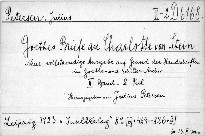 Petersen, Julius
Goethes Briefe an Charlotte von Stein
Neue vollständige Ausgabe auf Grund der Handschriften
im Goethe- und Schiller-Archiv
II Band. 2 Teil
Herausgegeben von Julius Petersen
Leipzig 1923 Insel Verlag 8°